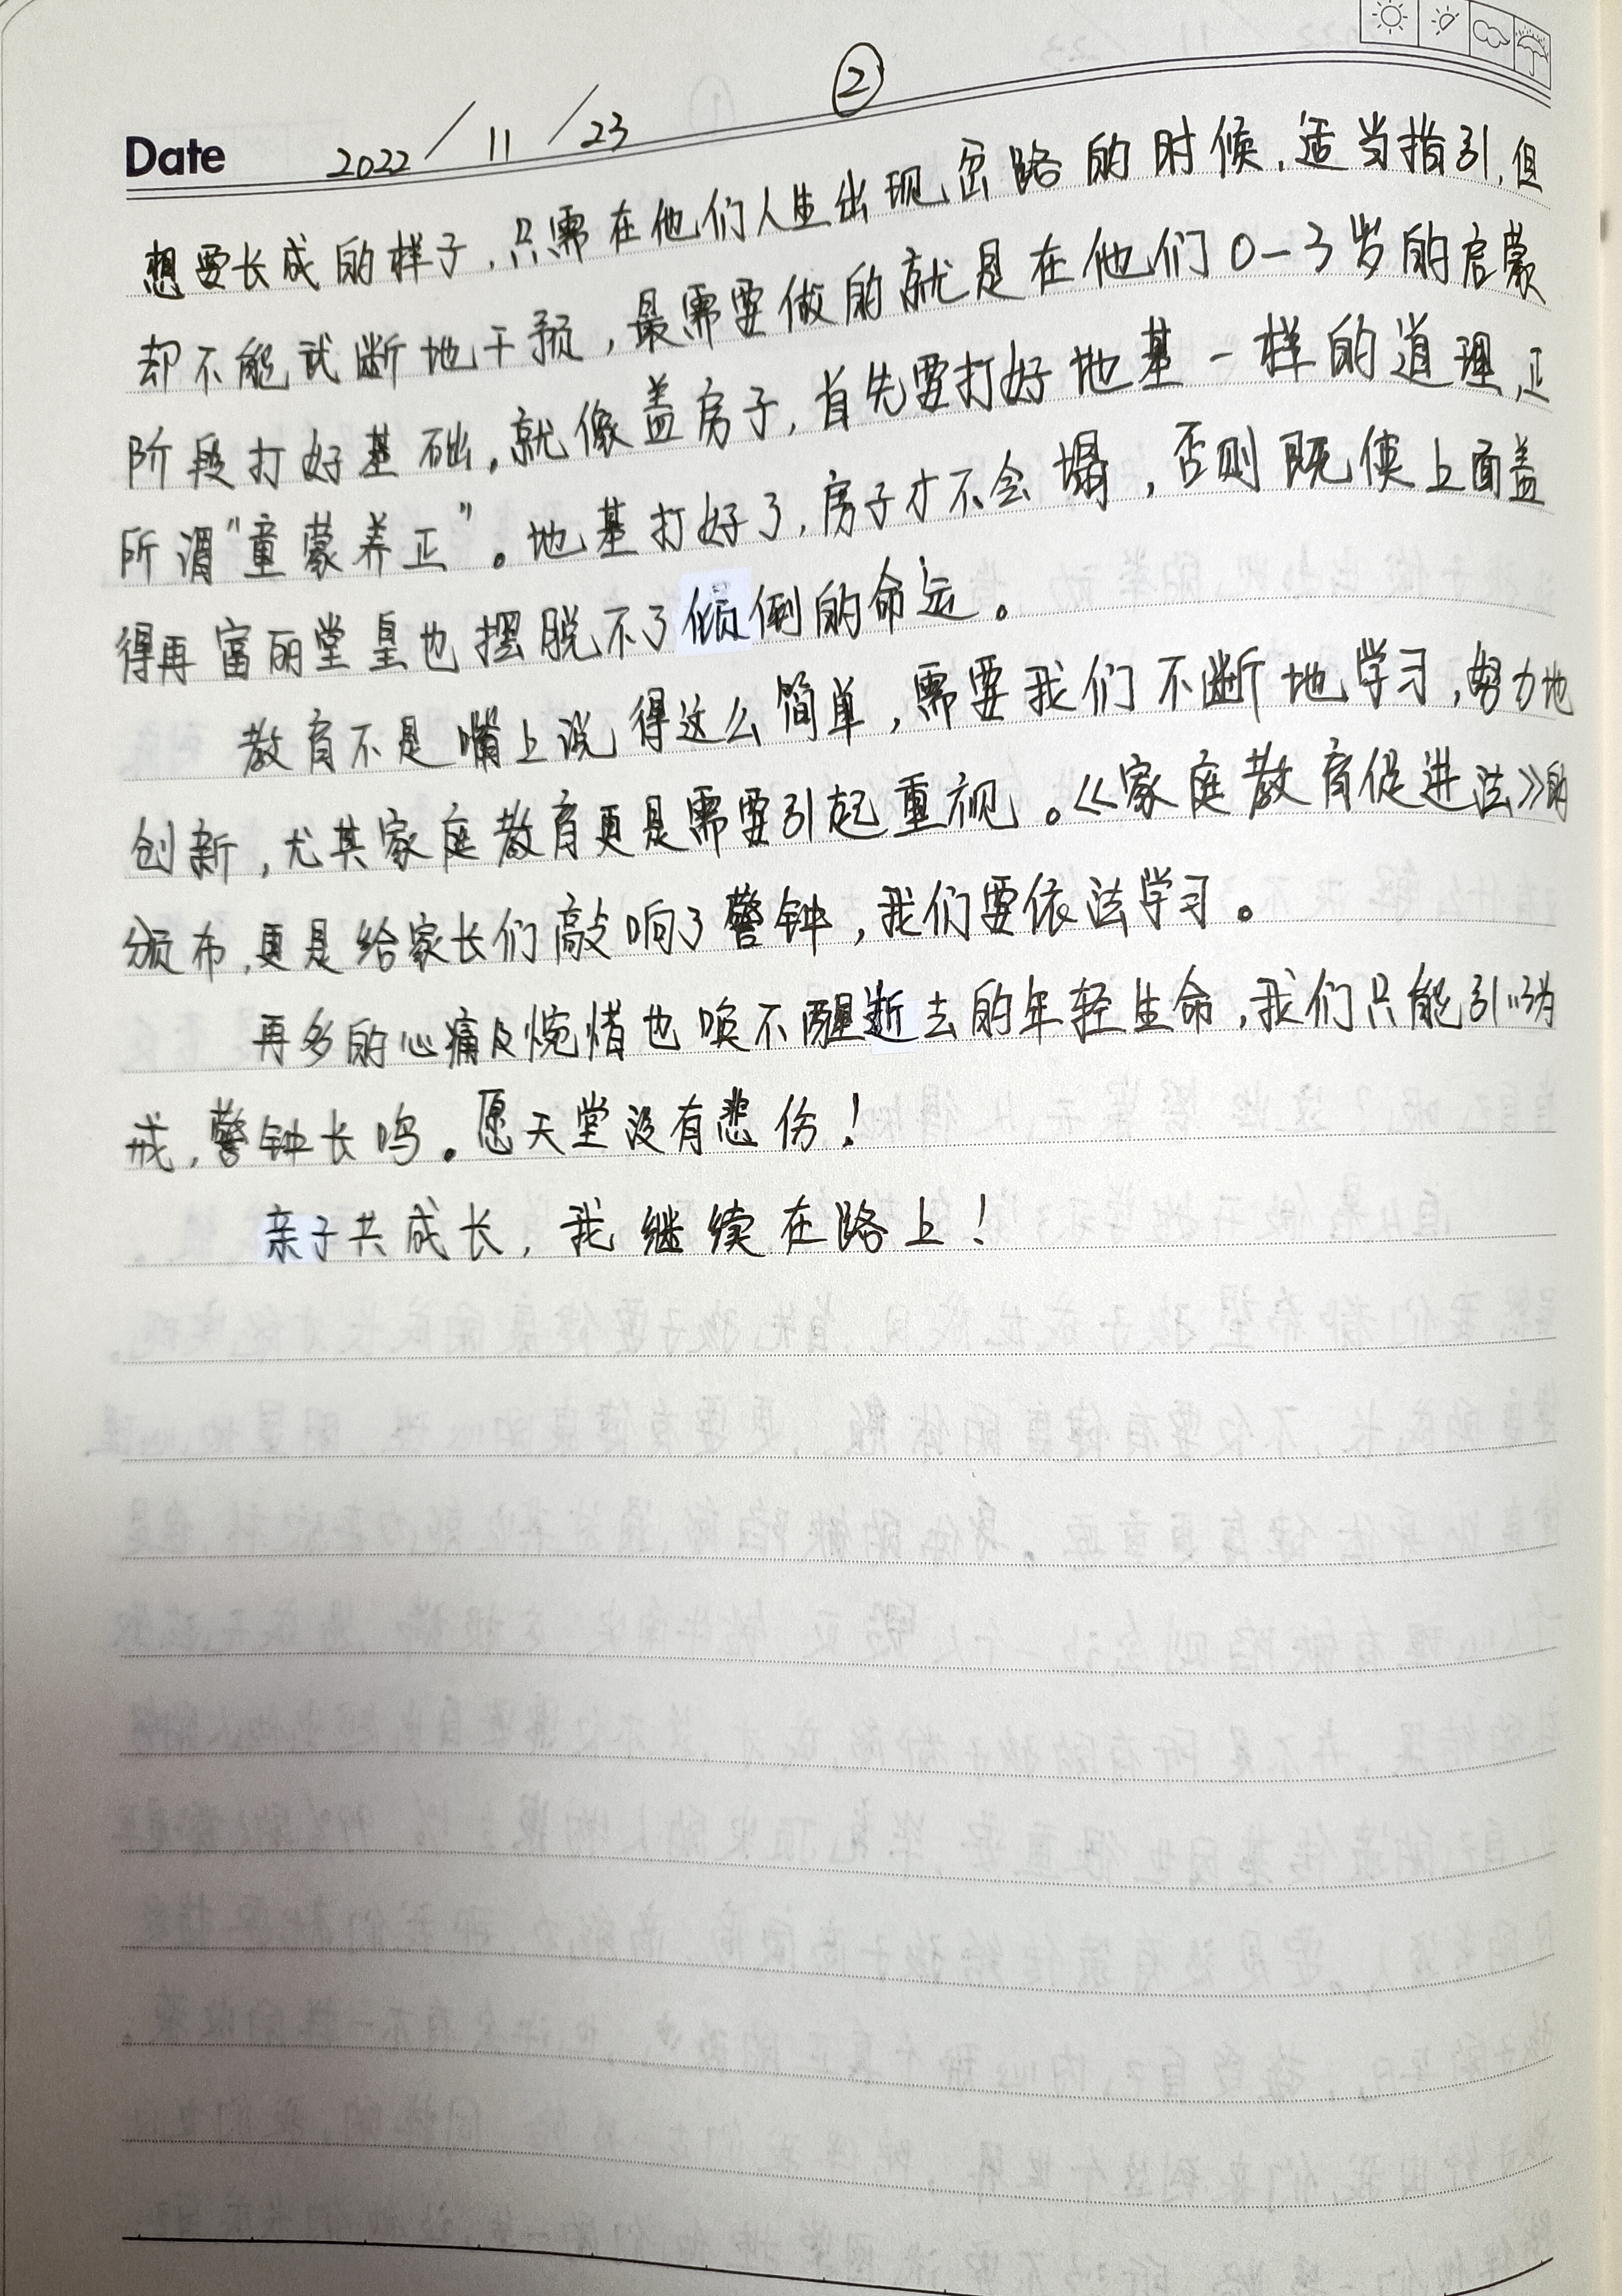 ②
Date 2022/11/23
想要长成的样子，只需在他们人生出现岔路的时候，适当指引，但
却不能武断地干预，最需要做的就是在他们0-3岁的启蒙
阶段打好基础，就像盖房子，首先要打好地基一样的道理，正
所谓"童蒙养正"。地基打好了，房子才不会塌，否则既使上面盖
得再富丽堂皇也摆脱不了倾倒的命运。
教育不是嘴上说得这么简单，需要我们不断地学习，努力地
创新，尤其家庭教育更是需要引起重视。《家庭教育促进法》的
颁布，更是给家长们敲响了警钟，我们要依法学习。
再多的心痛及惋惜也唤不醒逝去的年轻生命，我们只能引以为
戒，警钟长鸣。愿天堂没有悲伤！
亲子共成长，我继续在路上！